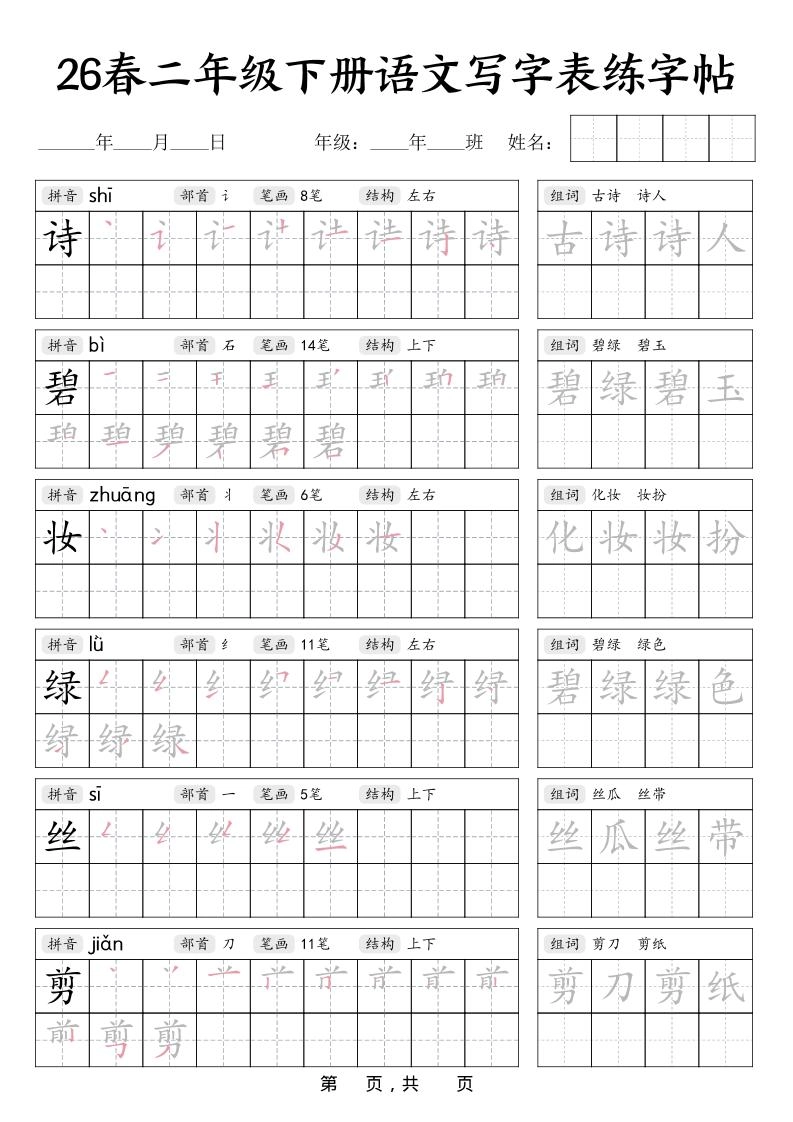 26春二年级下册语文写字表练字帖
______年____月____日 年级：____年____班 姓名：
拼音 shī 部首 讠 笔画 8笔 结构 左右 组词 古诗 诗人
诗 诗 古诗诗人
拼音 bì 部首 石 笔画 14笔 结构 上下 组词 碧绿 碧玉
碧 碧绿碧玉
碧
拼音 zhuāng 部首 丬 笔画 6笔 结构 左右 组词 化妆 妆扮
妆 妆 化妆妆扮
拼音 lǜ 部首 纟 笔画 11笔 结构 左右 组词 碧绿 绿色
绿 碧绿绿色
绿
拼音 sī 部首 一 笔画 5笔 结构 上下 组词 丝瓜 丝带
丝 丝 丝瓜丝带
拼音 jiǎn 部首 刀 笔画 11笔 结构 上下 组词 剪刀 剪纸
剪 剪刀剪纸
剪
第 页，共 页